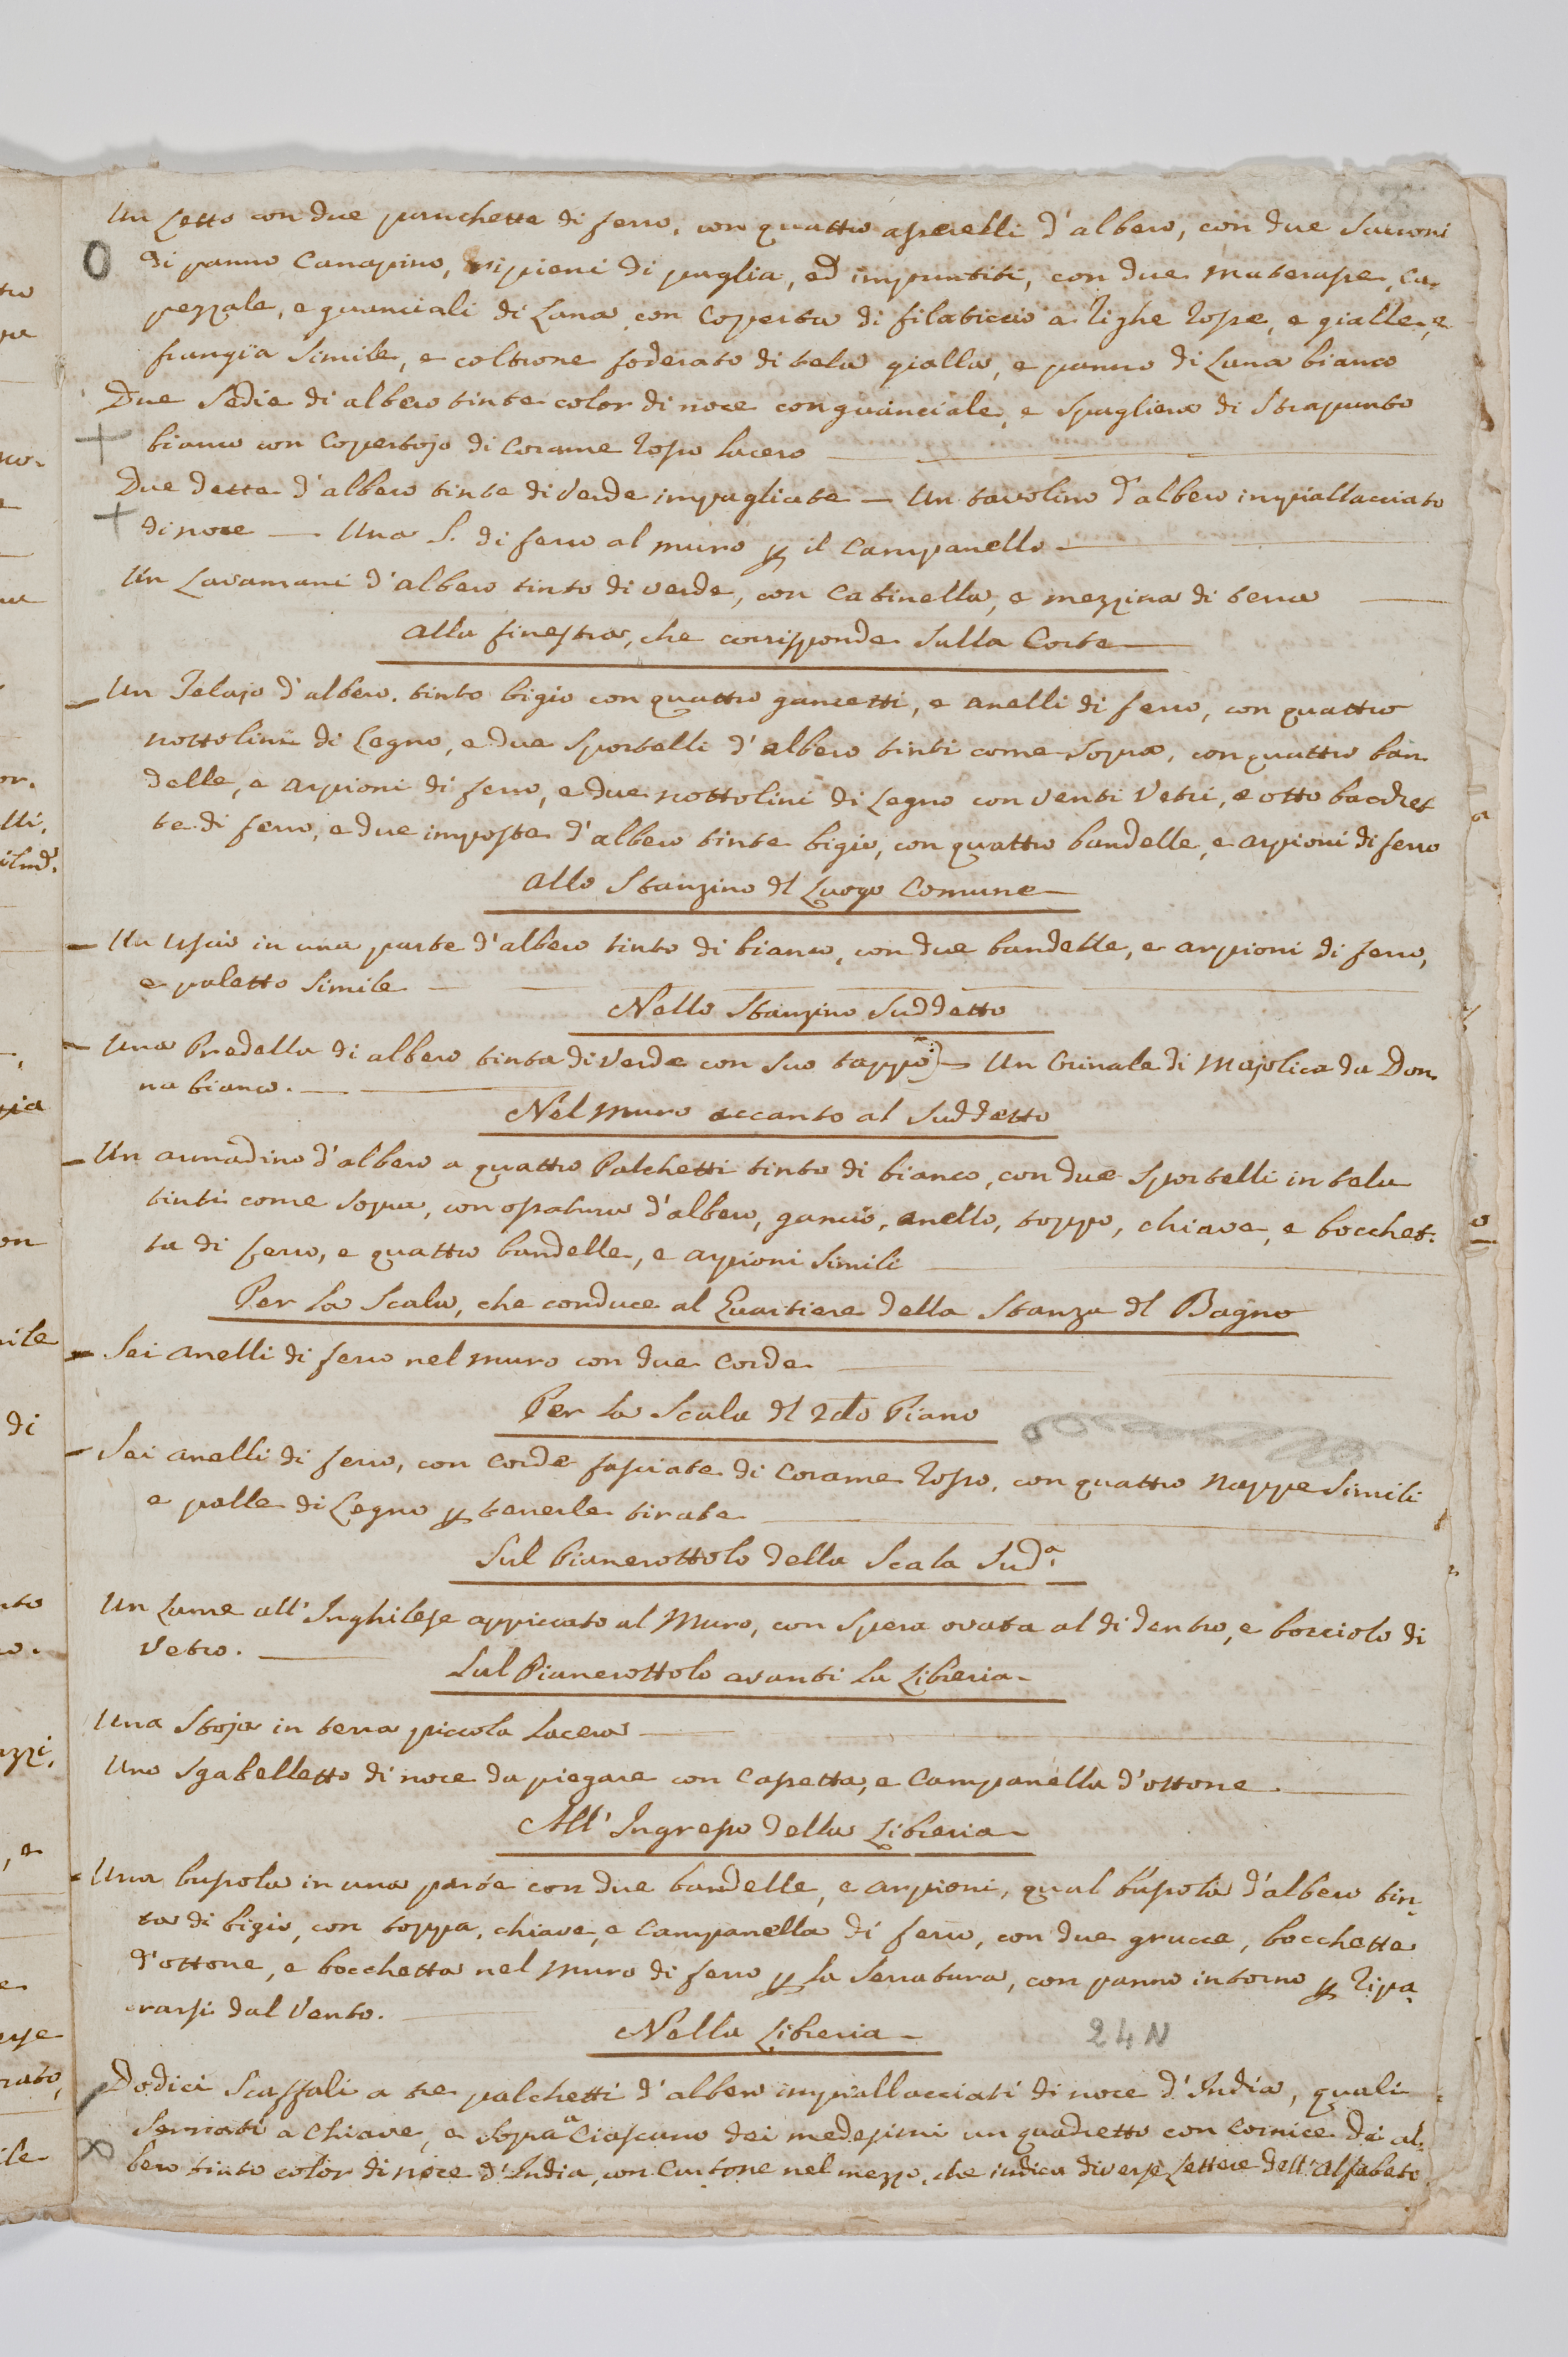 Un Letto con due panchette di ferro, con quattro asserelli d'albero, con due Sacconi
di panno Canapino, ripieni di paglia, ed impuntiti, con due materasse, ca-
pezzale, e guanciali di Lana con Coperta di filaticcio a righe rosse, e gialle, e
frangia simile, e coltrone foderato di tela gialla, e panno di Lana bianco
Due Sedie di albero tinte color di noce con guanciale, e Spagliera di Strapunto
bianco con Copertojo di Corame rosso lacero
Due dette d'albero tinte di verde impagliate — Un tavolino d'albero impiallacciato
di noce — Una S. di ferro al muro p il Campanello
Un Lavamani d'albero tinto di verde, con Catinella, e mezzina di terra
Alla finestra, che corrisponde sulla Corte
Un Telajo d'albero tinto bigio con quattro gancetti, e anelli di ferro, con quattro
nottolini di Legno, e due Sportelli d'albero tinti come sopra, con quattro ban-
delle, e arpioni di ferro, e due nottolini di Legno con venti Vetri, e otto bacchet
te di ferro, e due imposte d'albero tinte bigie, con quattro bandelle, e arpioni di ferro
Allo Stanzino dl Luogo Comune
Un Uscio in una parte d'albero tinto di bianco, con due bandelle, e arpioni di ferro,
e paletto simile
Nello Stanzino Suddetto
Una Predella di albero tinta di verde con suo tappo — Un Orinale di Majolica da Don-
na bianco.
Nel muro accanto al Suddetto
Un armadino d'albero a quattro Palchetti tinto di bianco, con due sportelli in tela
tinti come sopra, con ossatura d'albero, gancio, anello, toppo, chiave, e bocchet-
ta di ferro, e quattro bandelle, e arpioni simili
Per la Scala, che conduce al Quartiere della Stanza dl Bagno
Sei anelli di ferro nel muro con due Corde
Per la Scala dl 2do Piano
Sei anelli di ferro, con Corde fasciate di Corame rosso, con quattro nappe simili
e palle di Legno p tenerle tirate
Sul Pianerottolo della Scala Sud.a
Un Lume all'Inghilese appiccato al Muro, con spera ovata al di dentro, e bocciolo di
Vetro.
Sul Pianerottolo avanti la Libreria
Una Stoja in terra piccola lacera
Uno Sgabelletto di noce da piegare con Cassetta, e Campanella d'ottone
All'Ingresso della Libreria
Una bussola in una parte con due bandelle, e arpioni, qual bussola d'albero tin-
ta di bigio, con toppa, chiave, e Campanella di ferro, con due grucce, bocchetta
d'ottone, e bocchetta nel muro di ferro p la Serratura, con panno intorno p ripa-
rarsi dal Vento.
Nella Libreria
24 N
Dodici Scaffali a tre palchetti d'albero impiallacciati di noce d'India, quali
serrati a chiave, e sopra a Ciascuno dei medesimi un quadretto con Cornice di al-
bero tinto color di noce d'India, con Cartone nel mezzo, che indica diverse Lettere dell'Alfabeto